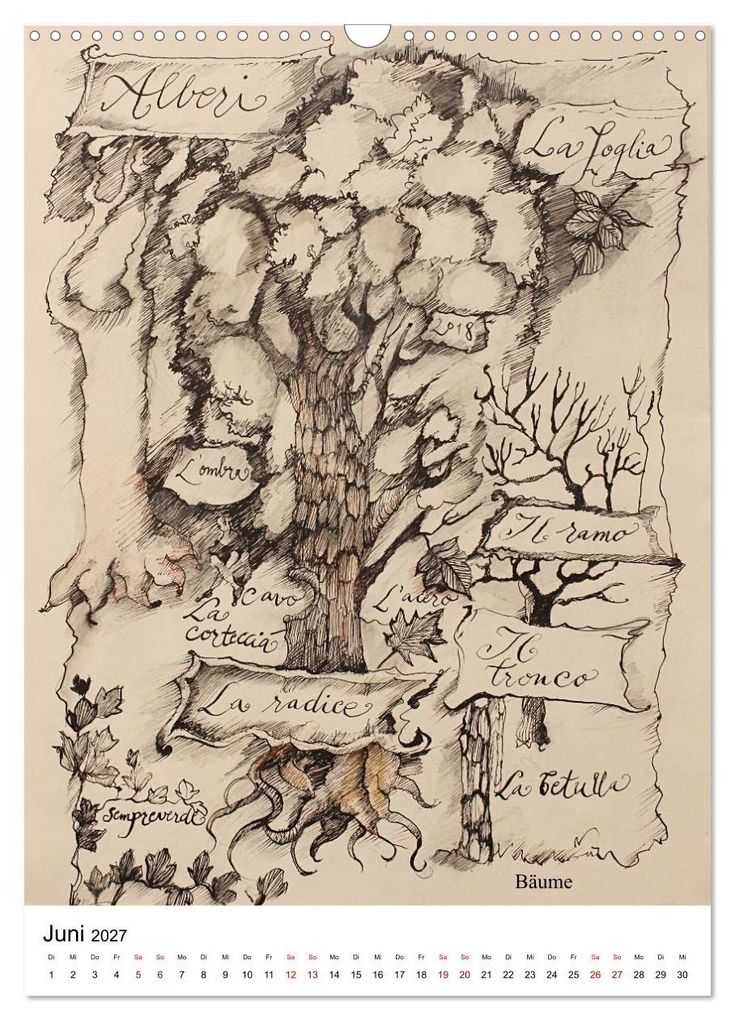 Alberi
La foglia
2018
L'ombra
Il ramo
Cavo
La
corteccia
L'acero
Il
tronco
La radice
La betulla
Sempreverde
Bäume
Juni 2027
Di Mi Do Fr Sa So Mo Di Mi Do Fr Sa So Mo Di Mi Do Fr Sa So Mo Di Mi Do Fr Sa So Mo Di Mi
1 2 3 4 5 6 7 8 9 10 11 12 13 14 15 16 17 18 19 20 21 22 23 24 25 26 27 28 29 30